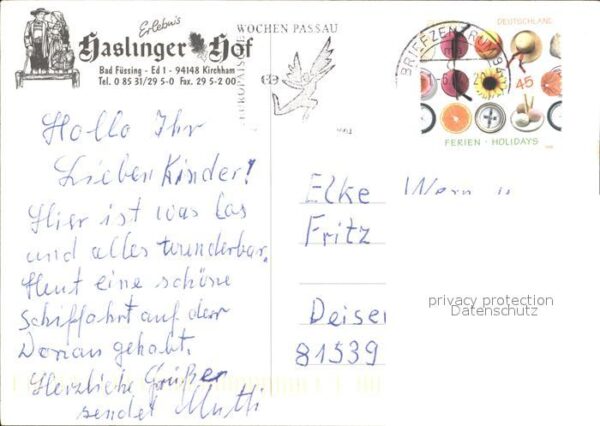 Erlebnis
Haslinger Hof
Bad Füssing - Ed 1 - 94148 Kirchham
Tel. 0 85 31/29 5-0 Fax 29 5-2 00
WOCHEN PASSAU
BRIEFZENTRUM 94
DEUTSCHLAND
45
FERIEN · HOLIDAYS
Hallo Ihr
Lieben Kinder!
Hier ist was los
und alles wunderbar.
Heut eine schöne
Schiffahrt auf der
Donau gehabt.
Herzliche Grüße
sendet Mutti
Elke
Fritz
Deiser
81539
privacy protection
Datenschutz